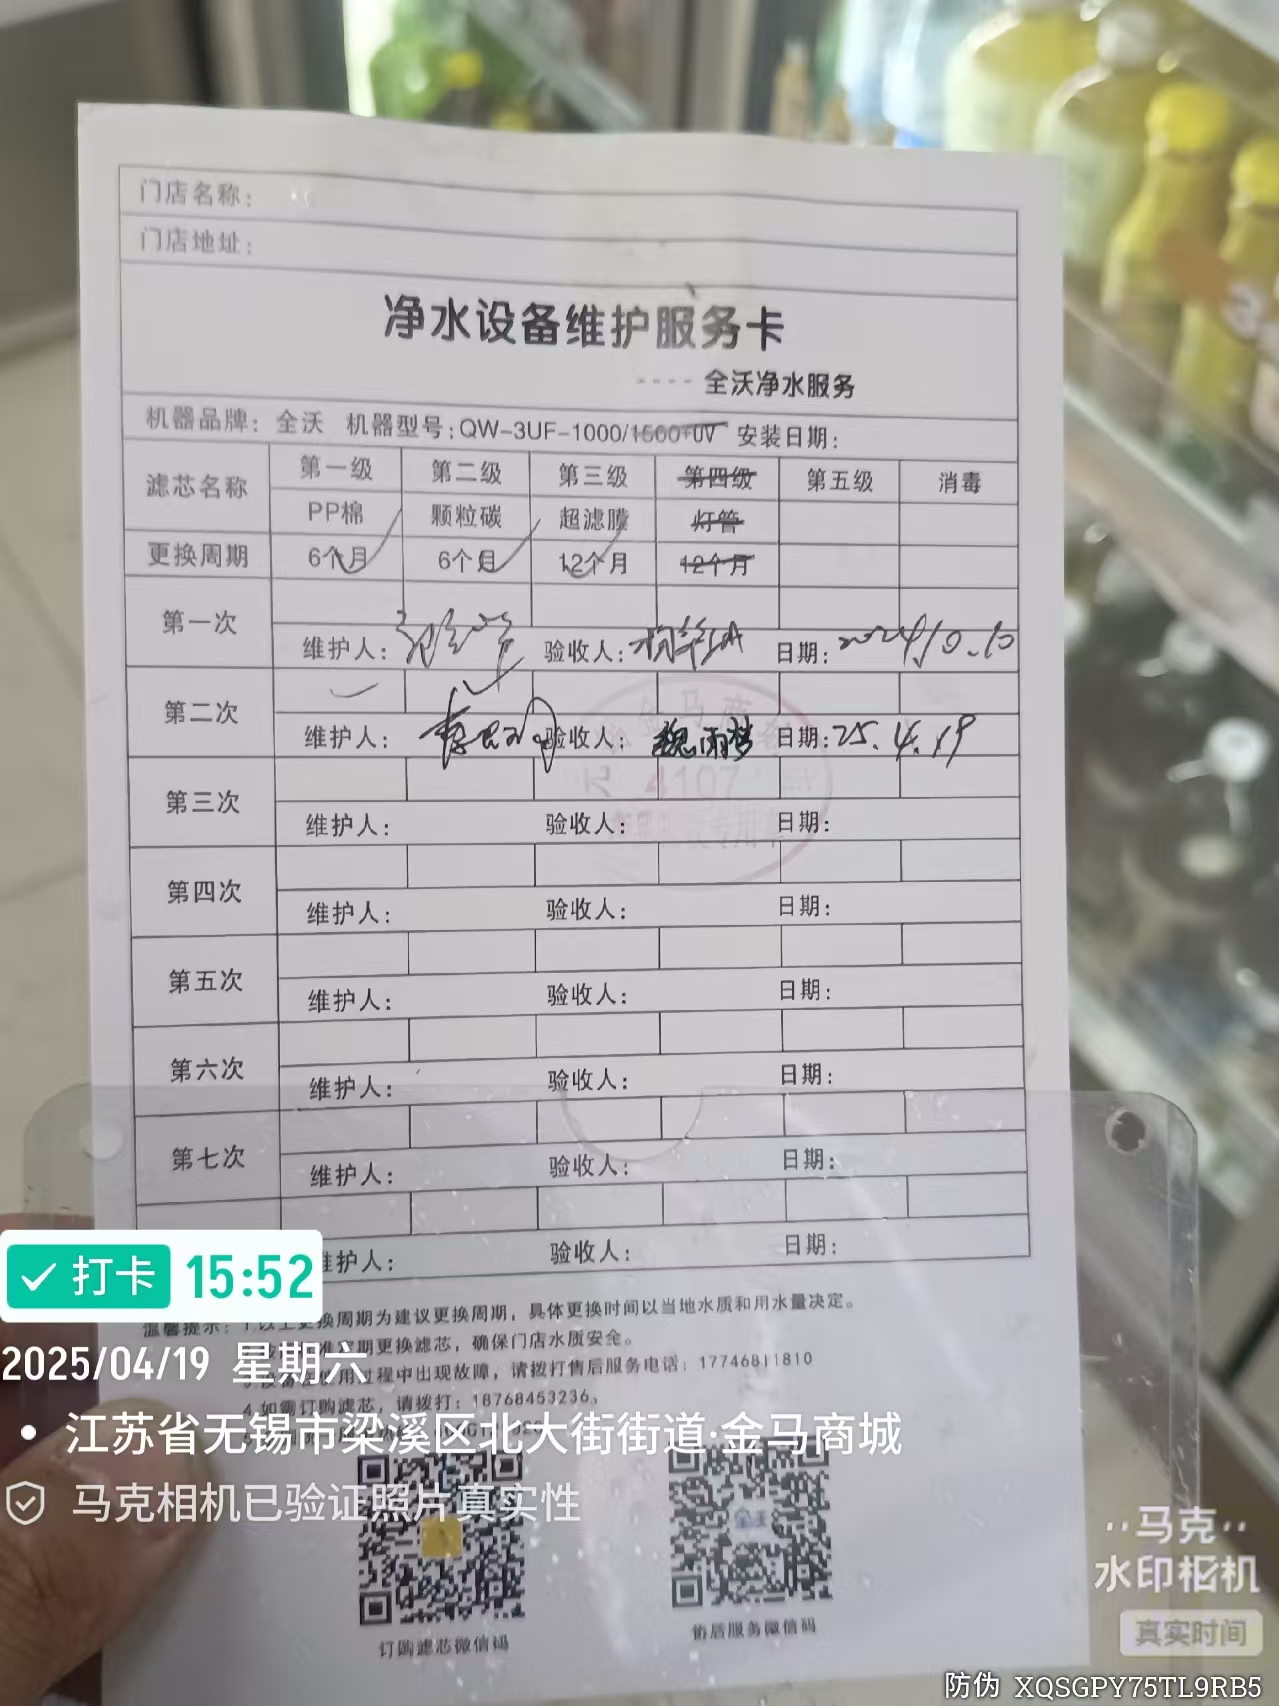 门店名称：
门店地址：
净水设备维护服务卡
---- 全沃净水服务
机器品牌：全沃 机器型号：QW-3UF-1000/1500+UV 安装日期：
滤芯名称 第一级 第二级 第三级 第四级 第五级 消毒
PP棉 颗粒碳 超滤膜 灯管
更换周期 6个月 6个月 12个月 12个月
第一次
维护人： 验收人： 日期：2024.10.10
第二次
维护人： 验收人：魏雨梦 日期：25.4.19
金马商
4107
专用
第三次
维护人： 验收人： 日期：
第四次
维护人： 验收人： 日期：
第五次
维护人： 验收人： 日期：
第六次
维护人： 验收人： 日期：
第七次
维护人： 验收人： 日期：
维护人： 验收人： 日期：
温馨提示：1.以上更换周期为建议更换周期，具体更换时间以当地水质和用水量决定。
定期更换滤芯，确保门店水质安全。
用过程中出现故障，请拨打售后服务电话：17746811810
4.如需订购滤芯，请拨打：18768453236。
订购滤芯微信码
售后服务微信码
打卡 15:52
2025/04/19 星期六
江苏省无锡市梁溪区北大街街道·金马商城
马克相机已验证照片真实性
马克
水印相机
真实时间
防伪 XQSGPY75TL9RB5